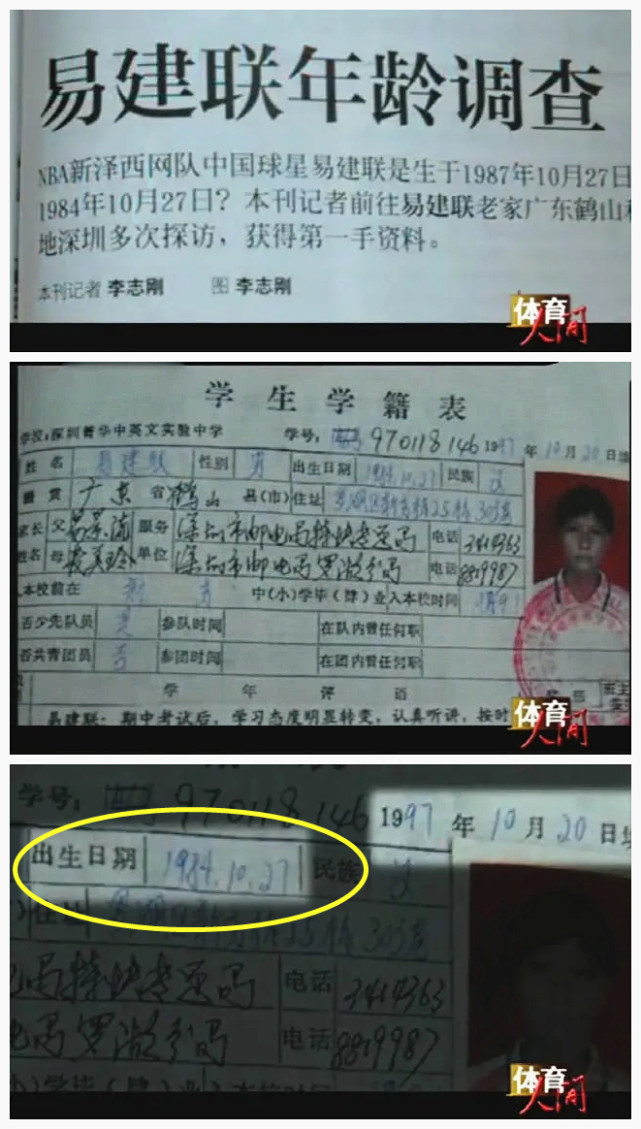 易建联年龄调查
NBA新泽西网队中国球星易建联是生于1987年10月27日
1984年10月27日?本刊记者前往易建联老家广东鹤山和
地深圳多次探访,获得第一手资料。
本刊记者 李志刚 图 李志刚
体育人间
学生学籍表
学校:深圳菁华中英文实验中学 学号: 970118146 1997年10月20日填
姓名 易建联 性别 男 出生日期 1984.10.27 民族 汉
籍贯 广东省鹤山县(市) 住址 25栋303
家长 父 易景流 服务 深圳市邮电局特快专递局 电话 3414363
姓名 母 单位 深圳市邮电局罗湖分局 电话 8819987
入本校前在 中(小)学毕(肄)业入本校时间
否少先队员 参队时间 在队内曾任何职
否共青团员 否 参团时间 在团内曾任何职
学年评语
易建联:期中考试后,学习态度明显转变,认真听讲,按时
体育人间
学号: 970118146 1997年10月20日填
出生日期 1984.10.27 民族 汉
住址 25栋303
局特快专递局 电话 3414363
电局罗湖分局 电话 8819987
小)学毕(肄)业入本校时间
体育人间